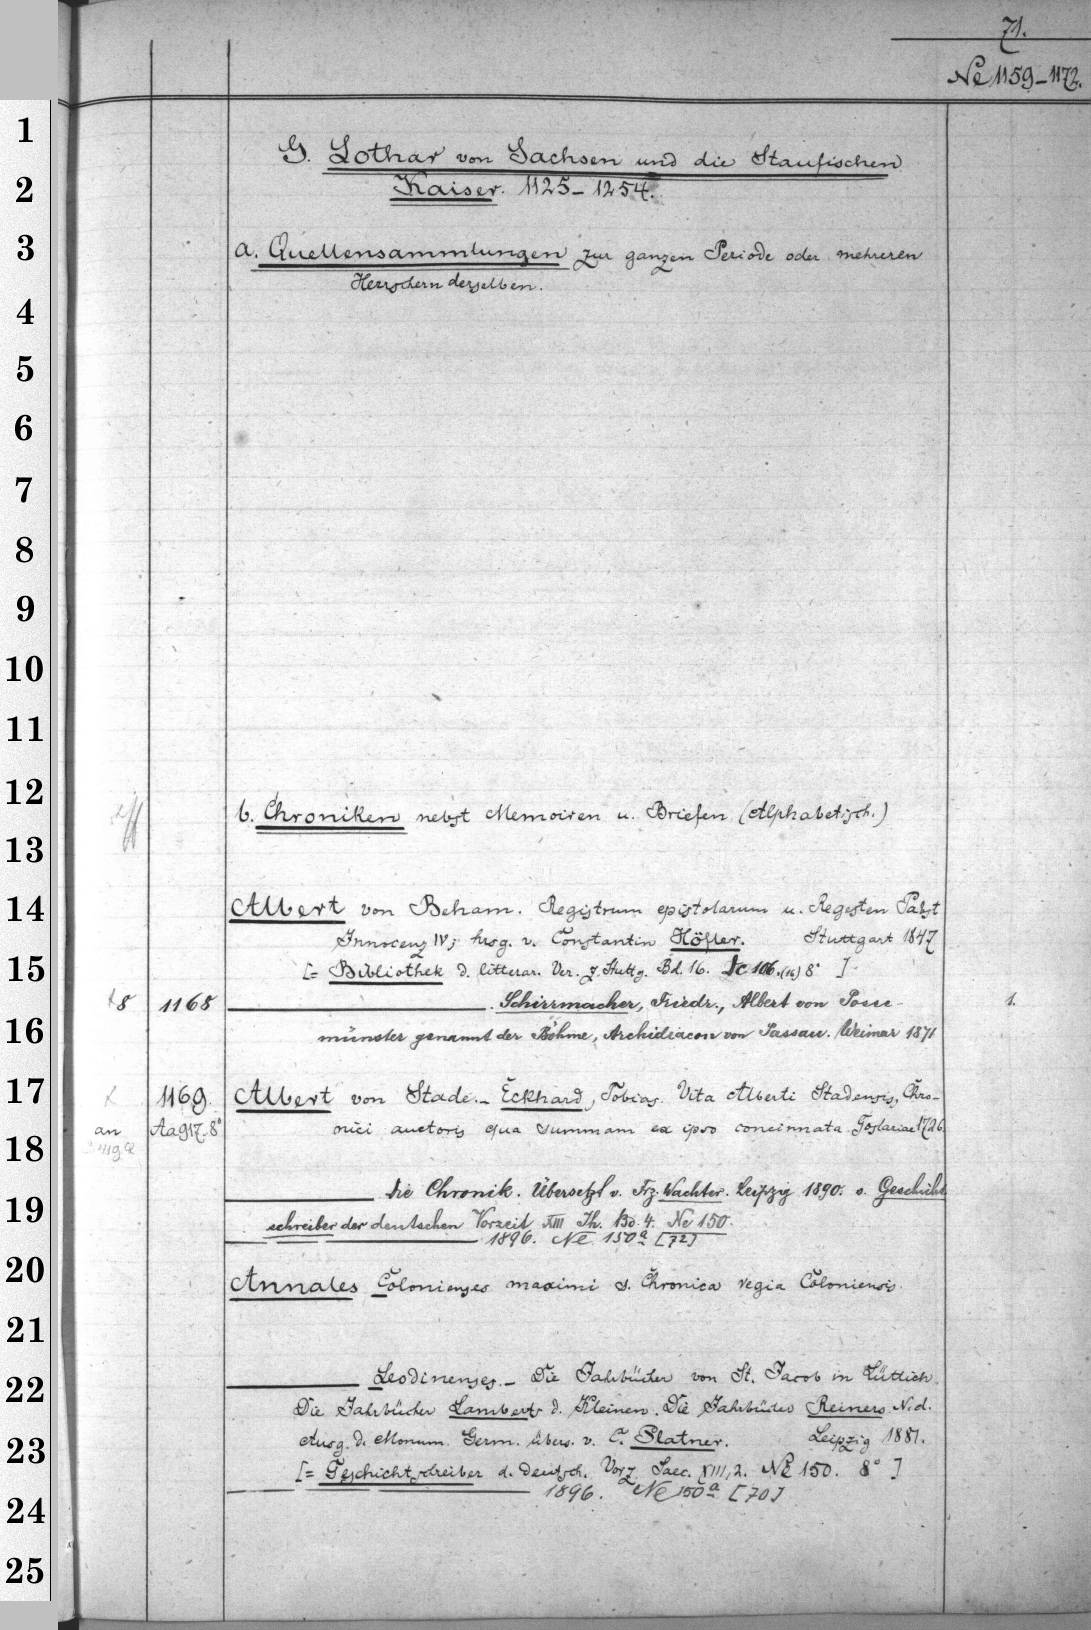 71.
Ne 1159-1172.
G. Lothar von Sachsen und die Staufischen
Kaiser. 1125-1254.
a. Quellensammlungen zur ganzen Periode oder mehreren
Herrschern derselben.
b. Chroniken nebst Memoiren u. Briefen (Alphabetisch.)
Albert von Beham. Registrum epistolarum u. Regesten Pabst
Innocenz IV; hrsg. v. Constantin Höfler. Stuttgart 1847
[= Bibliothek d. litterar. Ver. z. Stuttg. Bd. 16. Ic 106.(16) 8° ]
8 1168 Schirrmacher, Friedr., Albert von Posse- 1.
münster genannt der Böhme, Archidiacon von Passau. Weimar 1871
1169. Albert von Stade.- Eckhard, Tobias. Vita Alberti Stadensis, Chro-
an Aa 917. 8° nici auctoris qua summam ex ipso concinnata. Goslariae 1726.
die Chronik. Übersetzt v. Frz. Wachter. Leipzig 1890. s. Geschicht
schreiber der deutschen Vorzeit XIII Jh. Bd. 4. Ne 150.
1896. Ne 150a [72]
Annales Colonienses maximi s. Chronica regia Coloniensis.
Leodinenses.- Die Jahrbücher von St. Jacob in Lüttich.
Die Jahrbücher Lamberts d. Kleinen. Die Jahrbücher Reiners N. d.
Ausg. d. Monum. Germ. übers. v. C. Platner. Leipzig 1881.
[= Geschichtschreiber d. deutsch. Vorz. Saec. XIII, 2. Ne 150. 8° ]
1896. Ne 150a [70]
1
2
3
4
5
6
7
8
9
10
11
12
13
14
15
16
17
18
19
20
21
22
23
24
25